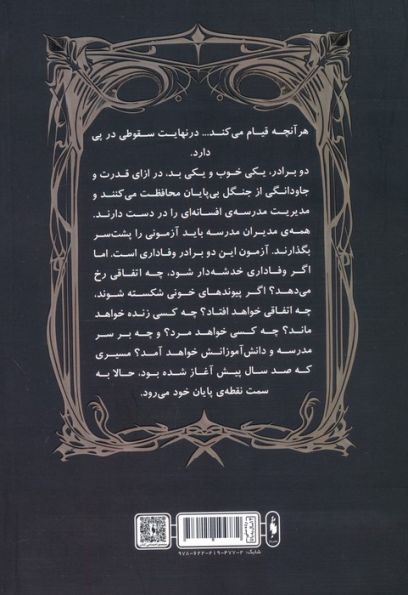 هر آنچه قیام می‌کند... درنهایت سقوطی در پی
دارد.
دو برادر، یکی خوب و یکی بد، در ازای قدرت و
جاودانگی از جنگل بی‌پایان محافظت می‌کنند و
مدیریت مدرسه‌ی افسانه‌ای را در دست دارند.
همه‌ی مدیران مدرسه باید آزمونی را پشت‌سر
بگذارند. آزمون این دو برادر وفاداری است. اما
اگر وفاداری خدشه‌دار شود، چه اتفاقی رخ
می‌دهد؟ اگر پیوندهای خونی شکسته شوند،
چه اتفاقی خواهد افتاد؟ چه کسی زنده خواهد
ماند؟ چه کسی خواهد مرد؟ و چه بر سر
مدرسه و دانش‌آموزانش خواهد آمد؟ مسیری
که صد سال پیش آغاز شده بود، حالا به
سمت نقطه‌ی پایان خود می‌رود.
شابک: ۲-۴۷۷-۴۱۹-۶۲۲-۹۷۸